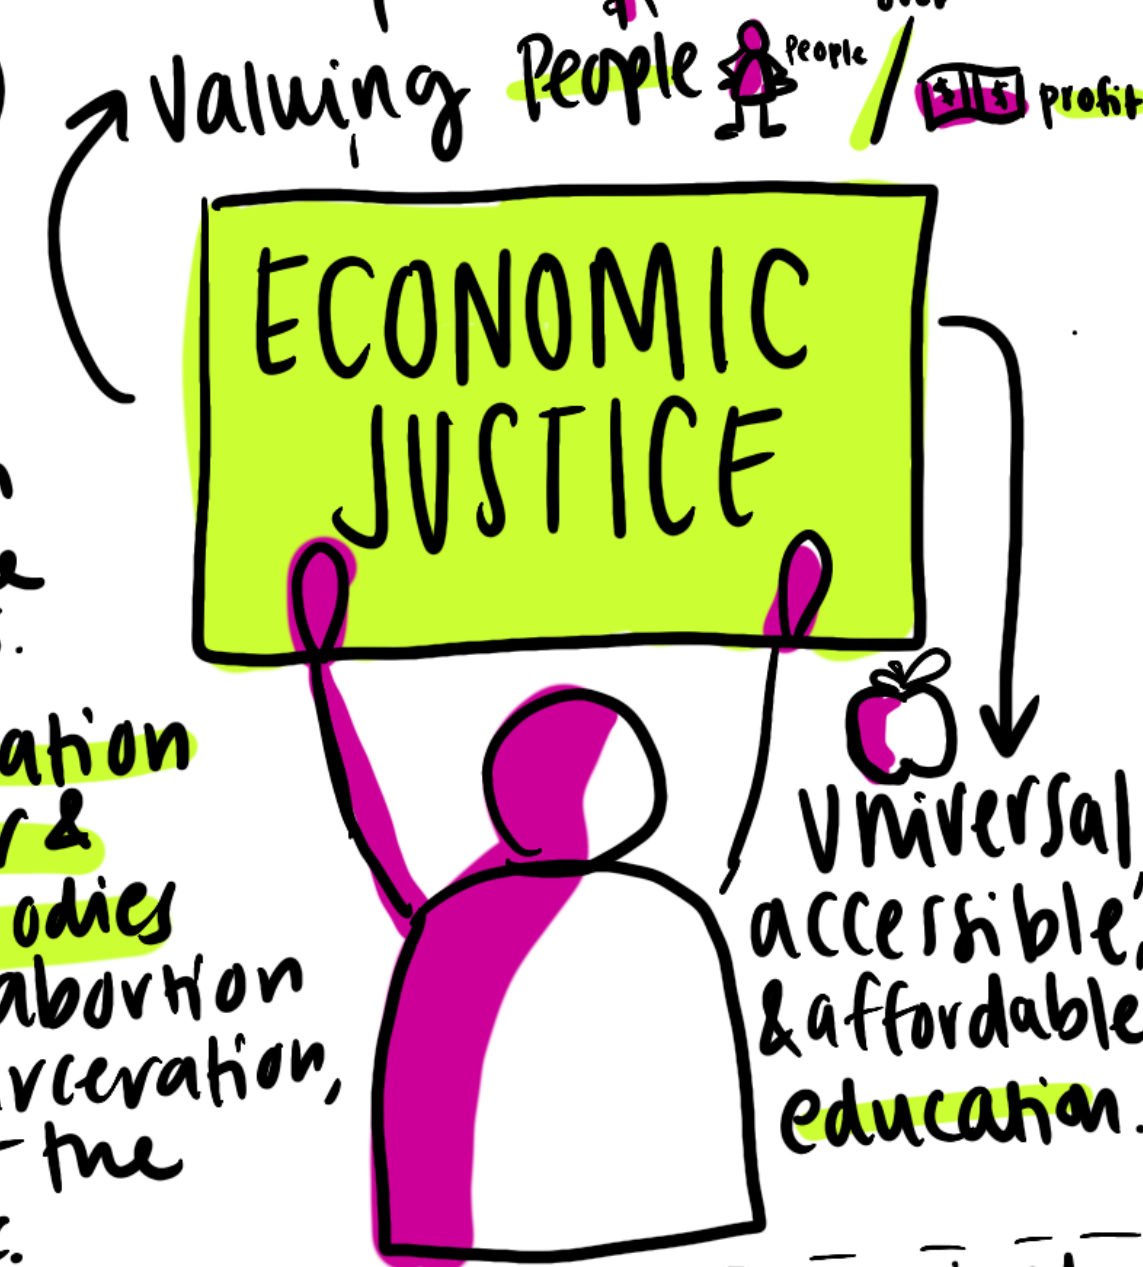 Valuing People People / over
$ $ profit
ECONOMIC
JUSTICE
ation
&
odies
abortion
rceration,
the
Universal,
accessible,
& affordable
education.